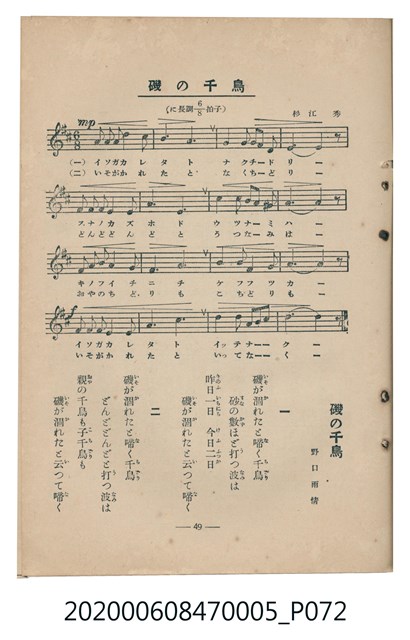 磯の千鳥
(に長調 6/8 拍子)
杉江秀
mp
(一) イソガカ レタト ナクチードリー
(二) いそがかれたと なくちーどり
スナノカズホド ウツナーミハー
どんどどんどと うつなーみはー
キノフイチニチ ケフフツカー
おやのちどりも こちどりもー
f
イソガカレタト イッテナーク
いそがかれたと いってなーく
磯の千鳥
野口雨情
一
磯が涸れたと啼く千鳥
砂の数ほど打つ波は
昨日一日 今日二日
磯が涸れたと云つて啼く
二
磯が涸れたと啼く千鳥
どんどどんどと打つ波は
親の千鳥も子千鳥も
磯が涸れたと云つて啼く
— 49 —
202000608470005_P072